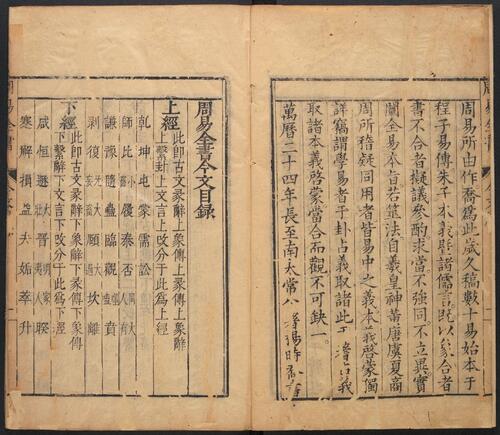 周易所由作喬爲此歲久稿數十易始本于
程子易傳朱子本義旣諸儒言旣以象合者
書不合者擬議參酌求當不強同不立異實
闡全易本旨若筮法自羲皇神黃唐虞夏商
周所稽疑同用者皆易中之義本義啓蒙獨
詳竊謂學易者于卦占義取諸此
取諸本義啓蒙當合而觀不可缺一。
萬曆二十四年長至南太常
周易全書今文目錄
上經
此即古文彖辭上象傳上爻辭
繫辭上文言上改分于此爲上經
乾 坤 屯 蒙 需 訟
師 比 小畜 履 泰 否 同人 大有
謙 豫 隨 蠱 臨 觀 噬嗑 賁
剝 復 无妄 大畜 頤 大過 坎 離
下經
此即古文彖辭下象傳下爻傳
繫辭下文言下改分于此爲下經
咸 恒 遯 大壯 晉 明夷 家人 睽
蹇 解 損 益 夬 姤 萃 升